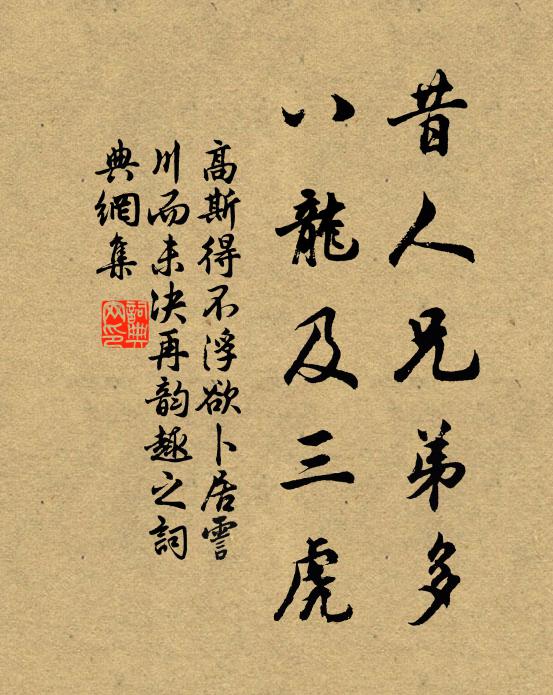 昔人兄弟多
八龍及三虎
高斯得不浮欲卜居霅
川而未決再韵趣之詞
典網集
詞典網印